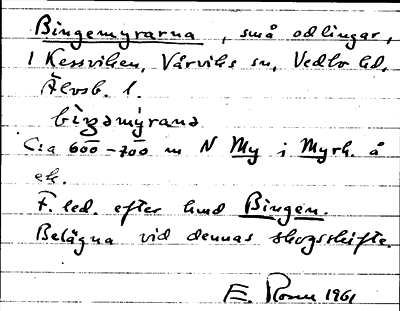 Bingemyrarna, små odlingar,
i Kesnviken, Vårviks sn, Vedbo hd,
Älvsb. l.
bìŋəmýrana
C:a 600-700 m N My i Myrh. å
ek.
F. led. efter hmd Bingen.
Belägna vid dennas skogsskifte.
E. Rosen 1961